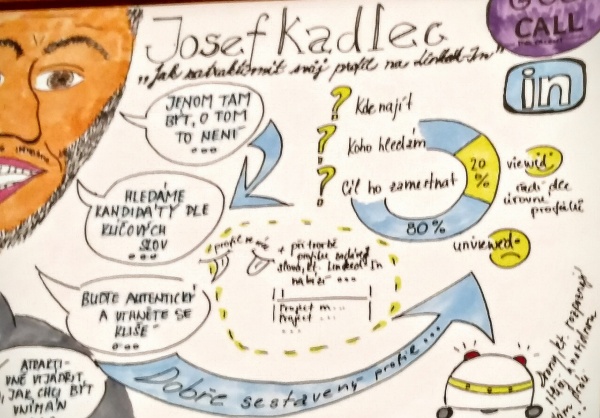 Josef Kadlec
GOOD
CALL
"Jak zatraktivnit svůj profil na LinkedIn"
in
JENOM TAM
BÝT, O TOM
TO NENÍ
...
HLEDÁME
KANDIDÁTY DLE
KLÍČOVÝCH
SLOV
...
BUĎTE AUTENTICKÝ
A VYHNĚTE SE
KLIŠÉ
...
? Kde najít
? Koho hledám
? Cíl ho zaměstnat
20
%
80%
viewed
řadí dle
úrovně
profilů
unviewed
+ při tvorbě
profilu
LinkedIn
nabízí ...
Project m...
Project ...
...
Dobře sestavený profil ...
JAK CHCI BÝT
VNÍMÁN